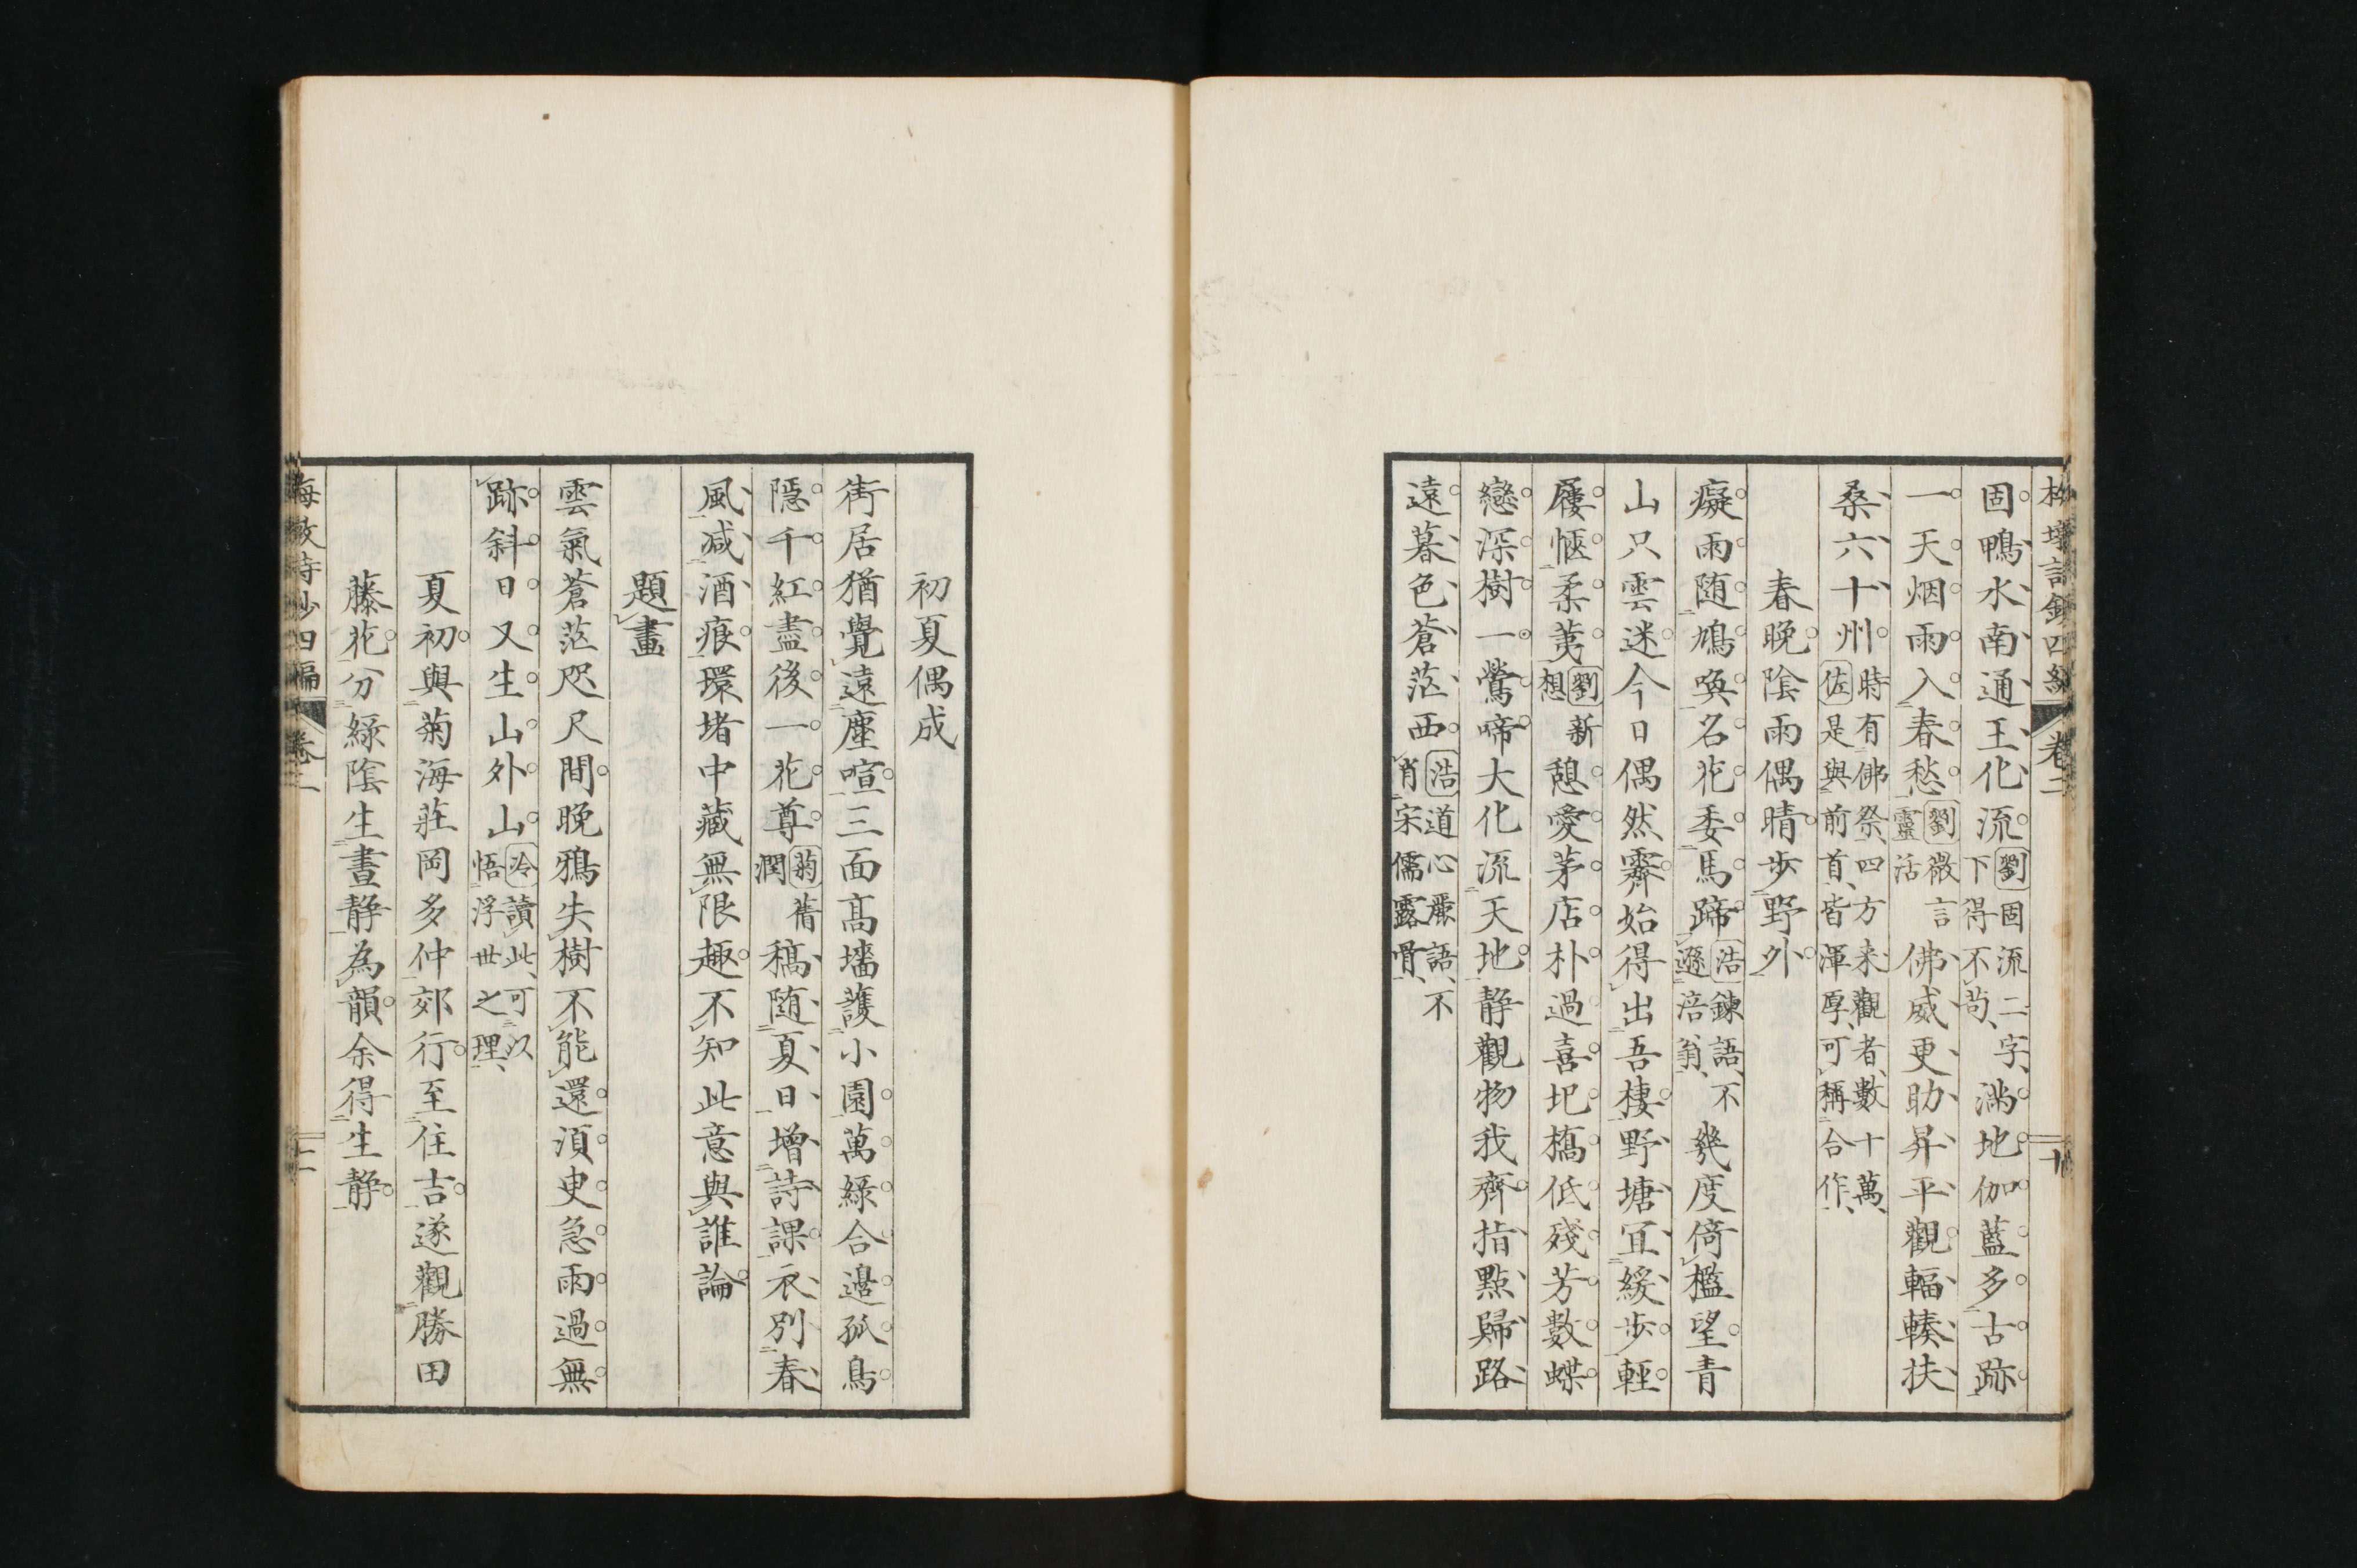 固鴨水南通王化流劉固流二字下得不苟滿地伽藍多古跡
一天烟雨入春愁劉微言靈活佛威更助昇平觀輻輳扶
桑六十州時有佛祭四方来觀者數十萬佐是與前首皆渾厚可稱合作
春晚陰雨偶晴步野外
癡雨随鳩喚名花委馬蹄浩鍊語不遜涪翁幾度倚檻望青
山只雲迷今日偶然霽始得出吾棲野塘宜緩步輕
屨愜柔荑劉新想憩愛茅店朴過喜圯橋低殘芳數蝶
戀深樹一鶯啼大化流天地静觀物我齊指點歸路
遠暮色蒼茫西浩道心厰語不肖宋儒露骨
初夏偶成
街居猶覺遠塵喧三面髙墻護小園萬綠合邊孤鳥
隱千紅盡後一花尊菊蒨潤稿随夏日增詩課衣別春
風减酒痕環堵中藏無限趣不知此意與誰論
題畫
雲氣蒼茫咫尺間晚鴉失樹不能還須臾急雨過無
跡斜日又生山外山冷讀此可以悟浮世之理
夏初與菊海莊岡多仲郊行至住吉遂觀勝田
藤花分緑陰生晝静為韻余得生静
海
詩鈔四編
卷二